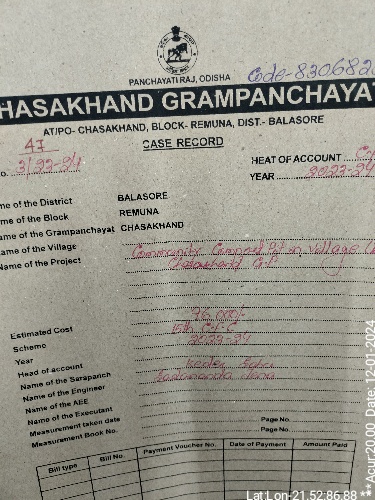 PANCHAYATI RAJ, ODISHA
Code-830682
HASAKHAND GRAMPANCHAYAT
AT/PO- CHASAKHAND, BLOCK- REMUNA, DIST.- BALASORE
CASE RECORD
HEAT OF ACCOUNT
AJ
o. 3/23-24
YEAR 2023-24
me of the District BALASORE
me of the Block REMUNA
ame of the Grampanchayat CHASAKHAND
ame of the Village
Name of the Project Community Compost Pit in Village
Chasakhand G.P
Estimated Cost 76,000/-
Scheme 15th C.F.C
Year 2023-24
Head of account
Name of the Sarapanch
Name of the Engineer
Name of the AEE
Name of the Executant
Measurement taken date Page No.
Measurement Book No. Page No.
Bill type Bill No. Payment Voucher No. Date of Payment Amount Paid
Lat Lon-21.52:86.88 ** Acur:20.00 Date,12-01-2024